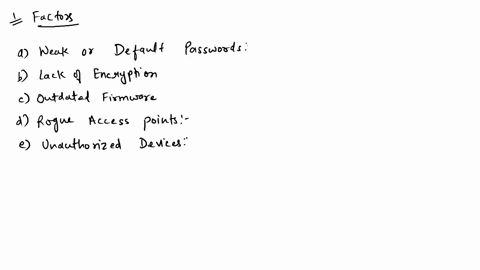 1 Factors
a) Weak or Default Passwords:
b) Lack of Encryption
c) Outdated Firmware
d) Rogue Access points:-
e) Unauthorized Devices:-